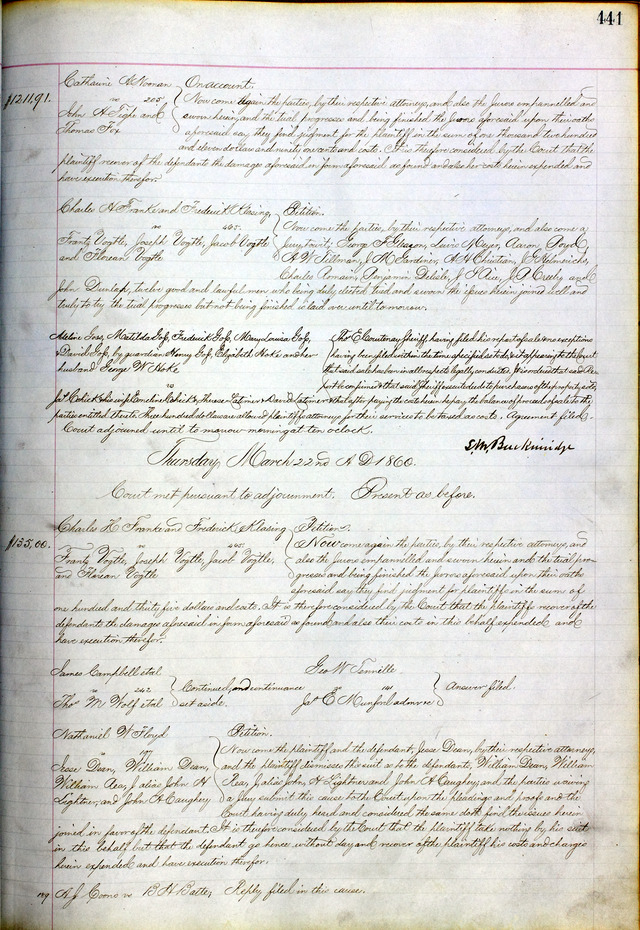 441
Catharine A Noonan On account.
$1211.91. vs 205 Now come again the parties, by their respective attorneys, and also the Jurors empannelled and
John H Tighe and sworn herein, and the trial progresses and being finished the Jurors aforesaid upon their oaths
Thomas Fox aforesaid say they find judgment for the plaintiff in the sum of one thousand two hundred
and eleven dollars and ninety one cents and costs. It is therefore considered by the Court that the
plaintiff recover of the defendants the damages aforesaid in form aforesaid as found and also her costs herein expended and
have execution therefor.
Charles H Franke and Frederick Klasing, Petition.
vs 465. Now come the parties, by their respective attorneys, and also come a
Frantz Vogtle, Joseph Vogtle, Jacob Vogtle Jury, towit; George F Gleason, Louis Meyer, Aaron Boyd,
and Florean Vogtle R W Sillman, J M Gardiner, A H Christian, J Helmerichs,
Charles Amain, Benjamin Delisle, J Rice, J A Creely, and
John Dunlap, twelve good and lawful men who being duly elected tried and sworn the issues herein joined well and
truly to try the trial progresses but not being finished is laid over until tomorrow.
Adeline Goss, Matilda Goss, Frederick Goss, Mary Louisa Goss, Thos E Courtenay Sheriff having filed his report of sale and no exceptions
David Goss, by guardian Henry Goss, Elizabeth Hoke and her having been filed within the time specified as to and it appearing to the Court
husband George W Hoke that said sale has been in all respects legally conducted, it is ordered that said Re
vs port be confirmed that said Sheriff execute deed to purchasers of the property sold,
Jas Chick &
parties entitled thereto. Three hundred dollars are allowed plaintiffs attorneys for their services to be taxed as costs. Agreement filed.
Court adjourned until tomorrow morning at ten o'clock.
S. M. Breckinridge
Thursday March 22nd A D 1860.
Court met pursuant to adjournment. Present as before.
Charles H Franke and Frederick Klasing Petition.
$135.00. vs 465. Now come again the parties, by their respective attorneys, and
Frantz Vogtle, Joseph Vogtle, Jacob Vogtle, also the Jurors empannelled and sworn herein and the trial pro-
and Florean Vogtle gresses and being finished the Jurors aforesaid upon their oaths
aforesaid say they find judgment for plaintiffs in the sum of
one hundred and thirty five dollars and costs. It is therefore considered by the Court that the plaintiffs recover of the
defendants the damages aforesaid in form aforesaid as found and also their costs in this behalf expended and
have execution therefor.
James Campbell et al Geo W Tennille
vs 242 Continued, and continuance vs 141 Answer filed.
Thos M Wolf et al set aside. Jas E Munford admr
Nathaniel W Floyd Petition.
vs 177 Now come the plaintiff and the defendant, Jesse Dean, by their respective attorneys,
Jesse Dean, William Dean, and the plaintiff dismisses the suit as to the defendants, William Dean, William
William Rea, J alias John H Rea, J alias John, H Lightner and John H Caughey and the parties waiving
Lightner, and John H Caughey a Jury submit this cause to the Court upon the pleadings and proofs and the
Court having duly heard and considered the same doth find the issues herein
joined in favor of the defendant. It is therefore considered by the Court that the plaintiff take nothing by his suit
in this behalf but that the defendant go hence without day and recover of the plaintiff his costs and charges
herein expended and have execution therefor.
149 A J Coons vs B H Batte, Reply filed in this cause.